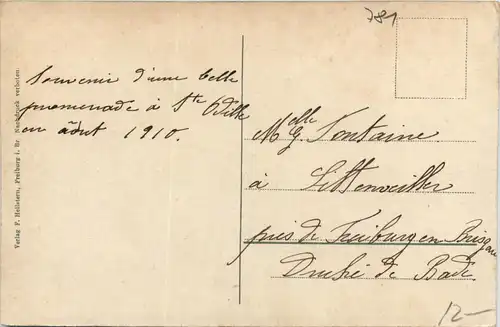 781
Souvenir d'une belle
promenade à Ste Odile
en août 1910.
Melle G. Fontaine
à Littenweiler
près de Freiburg en Brisgau
Duché de Bade
12-
Verlag P. Hellstern, Freiburg i. Br. Nachdruck verboten.